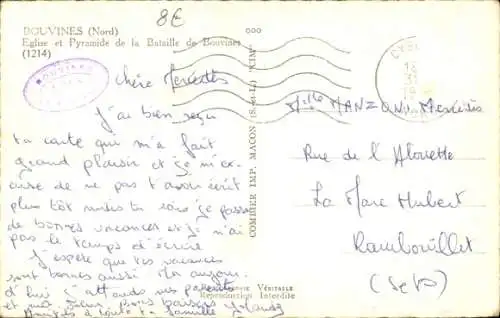 8€
BOUVINES (Nord)
Eglise et Pyramide de la Bataille de Bouvines
(1214)
BOUVINES
chère Mercédès
J'ai bien reçu
ta carte qui m'a fait
grand plaisir et je m'ex-
cuse de ne pas t'avoir écrit
plus tôt mais tu sais je passe
de bonnes vacances et je n'ai
pas le temps d'écrire
J'espère que tes vacances
sont bonnes aussi
d'hui j'attends mes parents
et ma sœur bons baisers
à toute ta famille
COMBIER IMP. MACON (S.-et-L.) "CIM"
Mlle MANZONI Mercédès
Rue de l'Alouette
La Mare Hubert
Rambouillet
(S et O)
VÉRITABLE
Reproduction Interdite